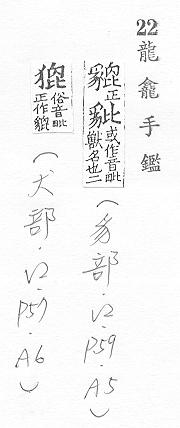 22 龍龕手鑑
貔正豼或作音毗獸名也二
（豸部．V2．P59．A5）
俗音毗正作貔
（犬部．V2．P57．A6）